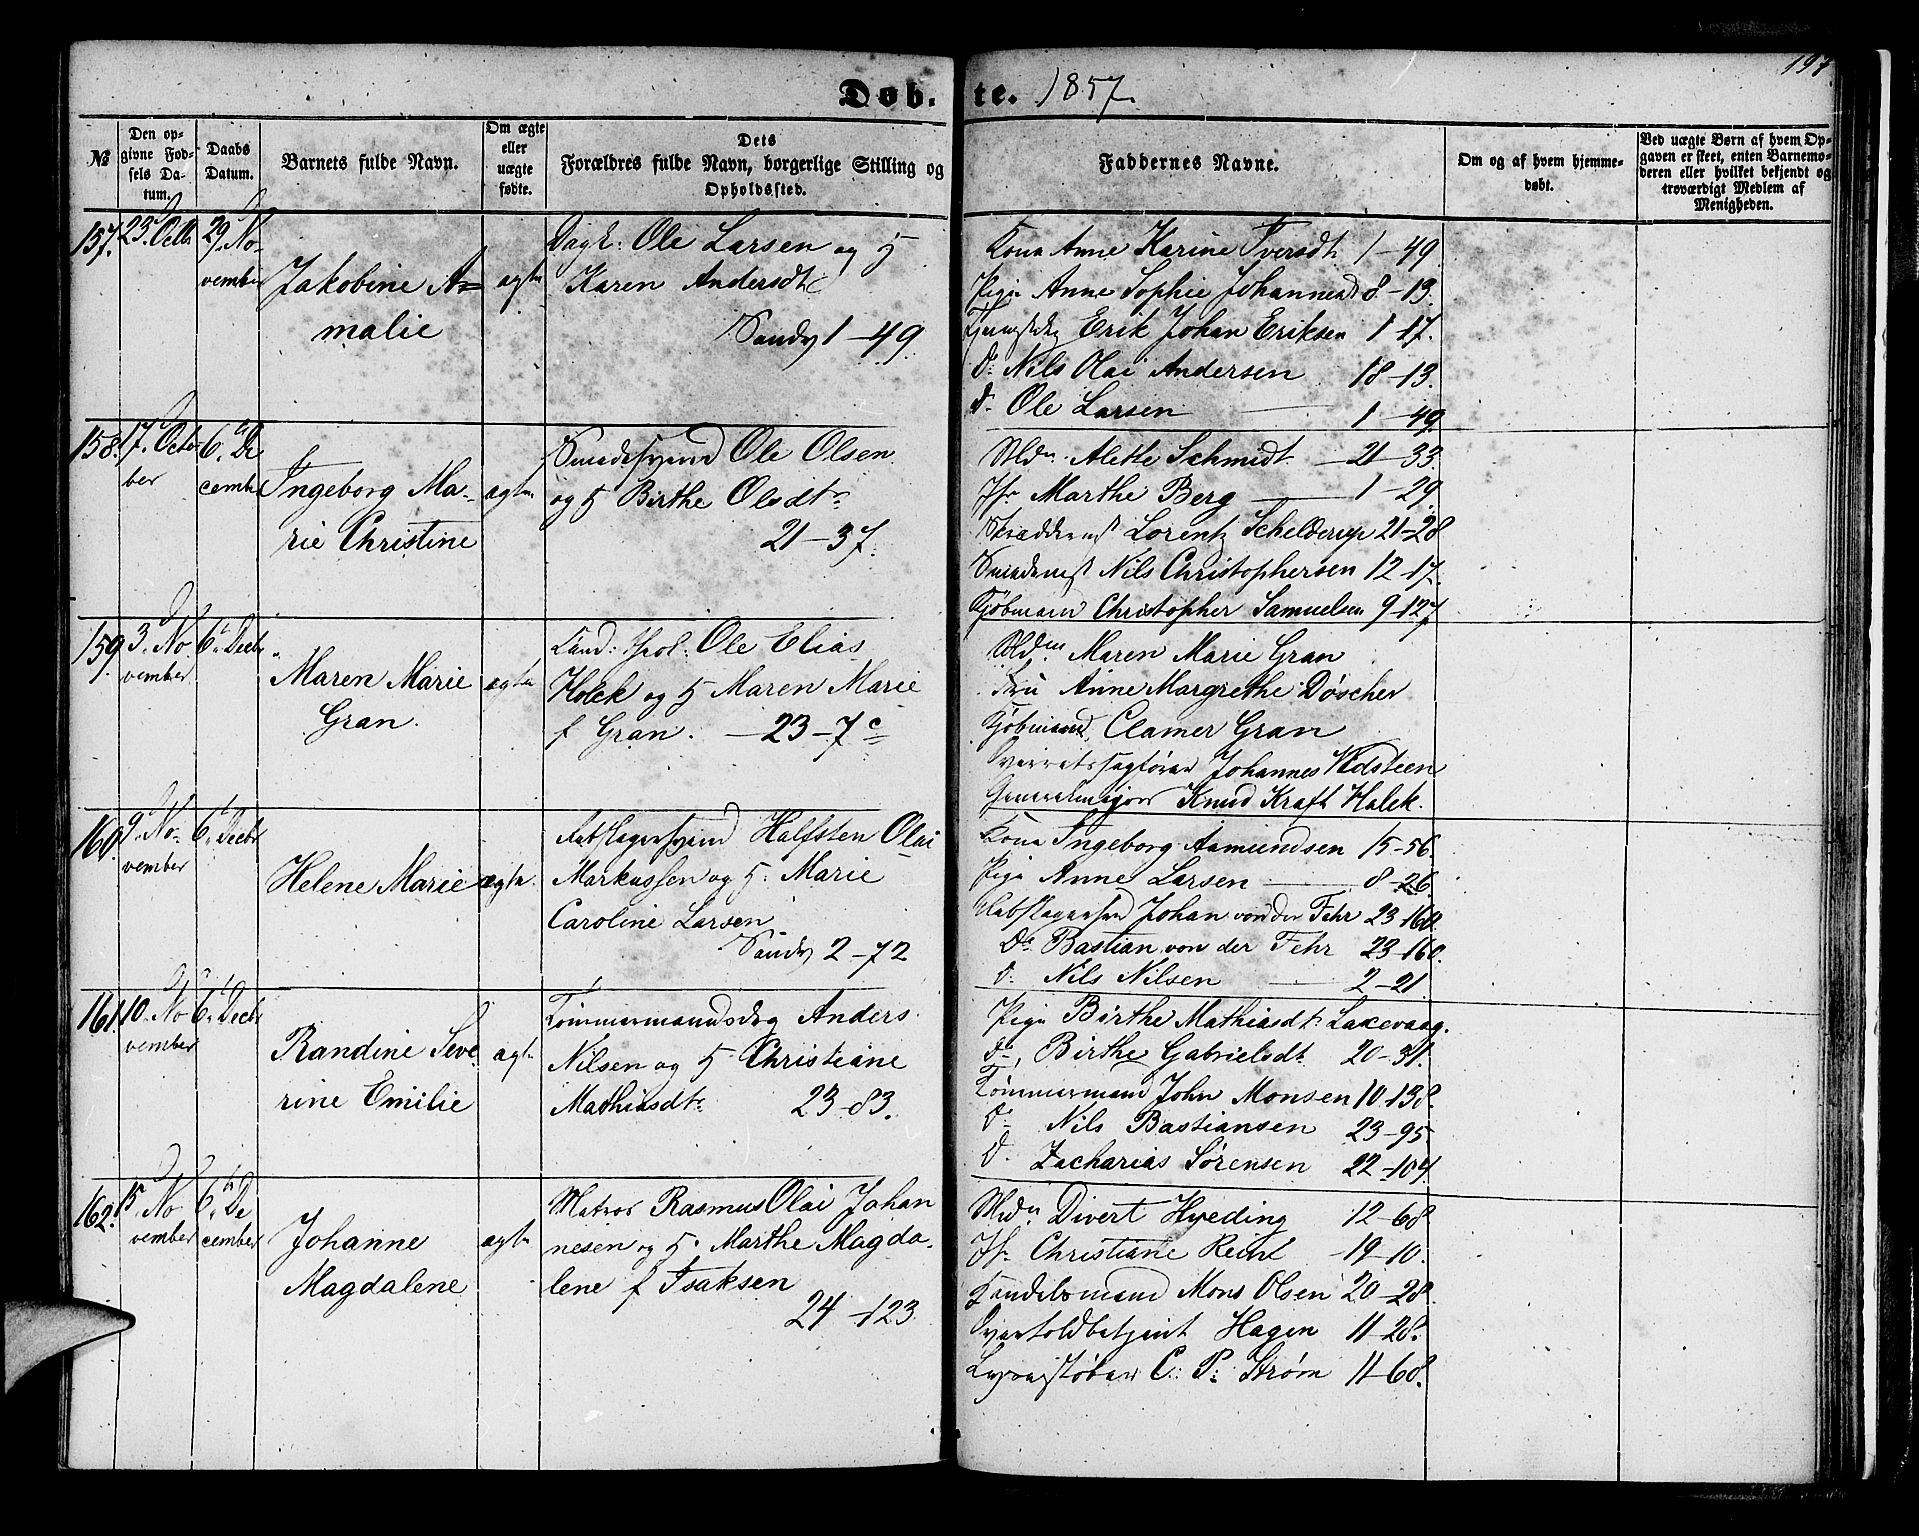 197
Døb- te. 1857.
No
Den opgivne Fødsels Datum.
Daabs Datum.
Barnets fulde Navn.
Om ægte eller uægte fødte.
Dets Forældres fulde Navn, borgerlige Stilling og Opholdssted.
Faddernes Navne.
Om og af hvem hjemmedøbt.
Ved uægte Børn af hvem Opgaven er skeet, enten Barnemoderen eller hvilket bekjendt og troværdigt Medlem af Menigheden.
157. 23. Octb 29. No-
vember
Jakobine A=
malie
ægte
Dagk: Ole Larsen og H
Karen Andersdt
Sandv 1-49.
Kona Anne Karine Iversdt. 1-49
Pige Anne Sophie Johannesd 8-13.
Erik Johan Eriksen 1-17.
Do Nils Olai Andersen 18-13.
D. Ole Larsen 1-49
158. 17. Octo-
ber
6. De
cember
Ingeborg Ma-
rie Christine
ægte
Smedesvend Ole Olsen
og H Birthe Olsdtr
21-37.
Md. Alethe Schmidt 21-33.
Jfr Marthe Berg 1-29.
Lorentz Schelderup 21-28
Smedemst Nils Christophersen 12-17.
Kjøbmand Christopher Samuelsen 9-127
159. 3. No-
vember
6. Decbr
Maren Marie
Gran.
ægte
Cand: theol: Ole Elias
Holck og H Maren Marie
f Gran. - 23-7c
Mdm Maren Marie Gran
Fru Anne Margrethe Døscher
Kjøbmand Clamer Gran
Overretssagfører Johannes Vedsteen
Generalmajor Knud Kraft Holck.
160. 9. No-
vember
6. Decbr
Helene Marie
ægte.
Rebslagersvend Halfsten Olai
Markussen og H. Marie
Caroline Larsen
Sandv 2-72
Kona Ingeborg Aamundsen 15-56.
Pige Anne Larsen 8-26.
Rebslagersvend Johan von der Fehr 23-160.
Do Bastian von der Fehr 23-160.
D. Nils Nilsen 2-21
161. 10. No-
vember
6. Decbr
Randine Seve
rine Emilie
ægte
Tømmermandsdrg Anders
Nilsen og H Christiane
Mathiasdtr 23-83.
Pige Birthe Mathiasdt: Laxevaag.
do, Birthe Gabrielsdt. 20-31.
Tømmermand John Monsen 10-138.
Do Nils Bastiansen 23-95
D. Zacharias Sørensen 22-104
162. 15. No-
vember
6. De
cember
Johanne
Magdalene
ægte
Matros Rasmus Olai Johan
nesen og H. Marthe Magda-
lene f Isaksen
24-123
Md. Divert Hveding 12-68
Jfr Christiane Reihl 19-10.
Handelsmand Mons Olsen 20-28
Overtoldbetjent Hagen 11-28.
C: P: Strøm 11-68.